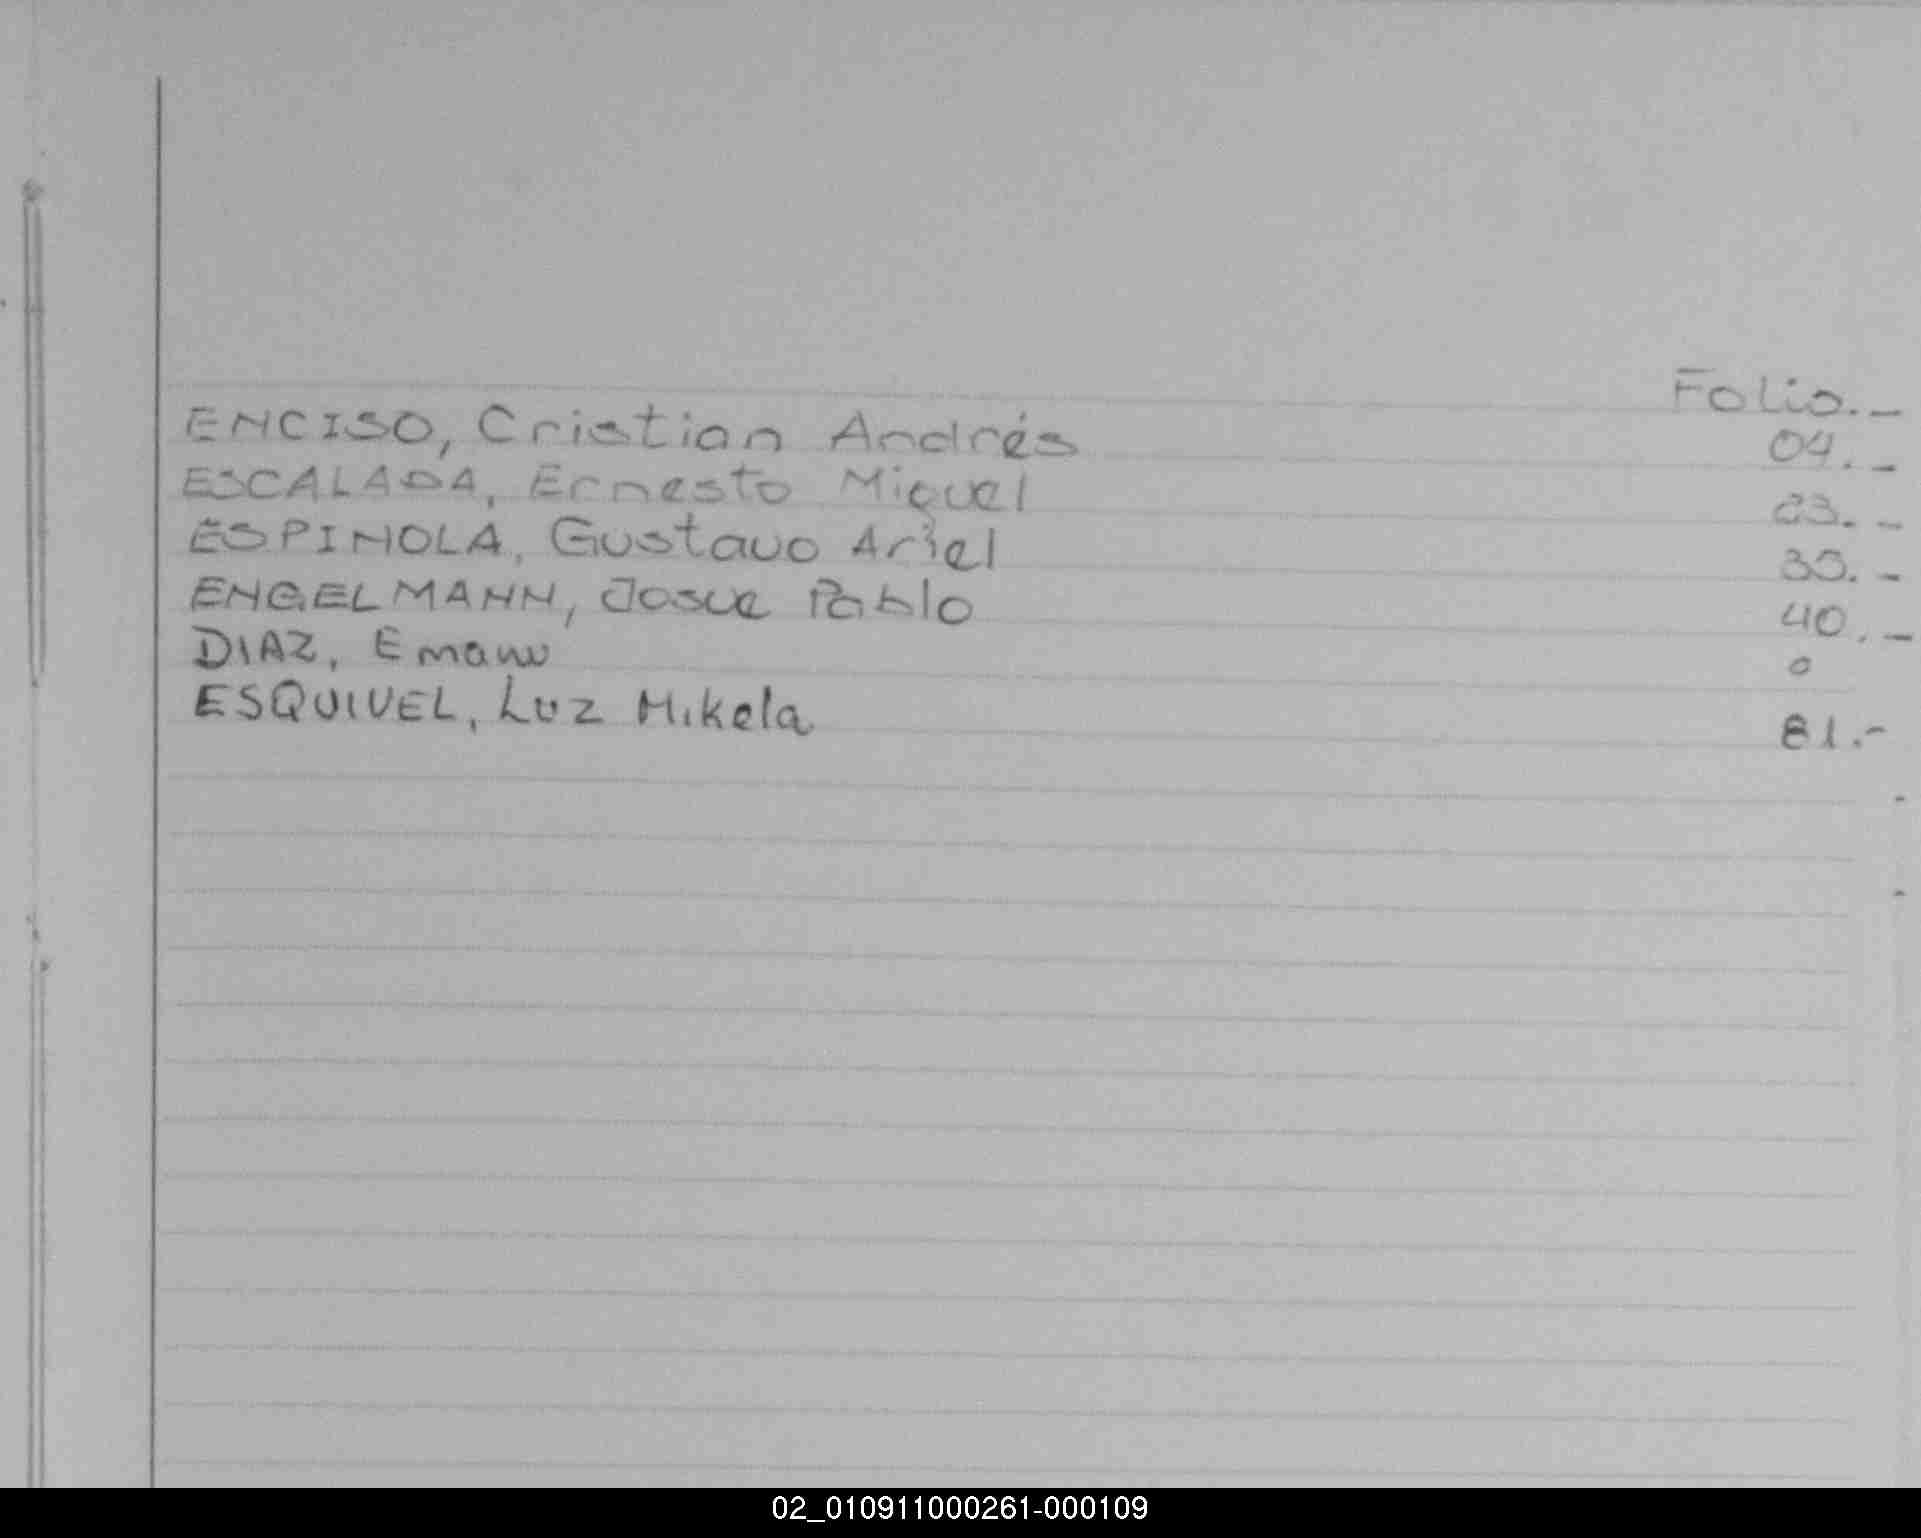 Folio.-
ENCISO, Cristian Andrés 04.-
ESCALADA, Ernesto Miguel 23.-
ESPINOLA, Gustavo Ariel
ENGELMANN, Josue Pablo 40.-
DIAZ, Emanu 0
ESQUIVEL, Luz Mikela 81.-
02_010911000261-000109